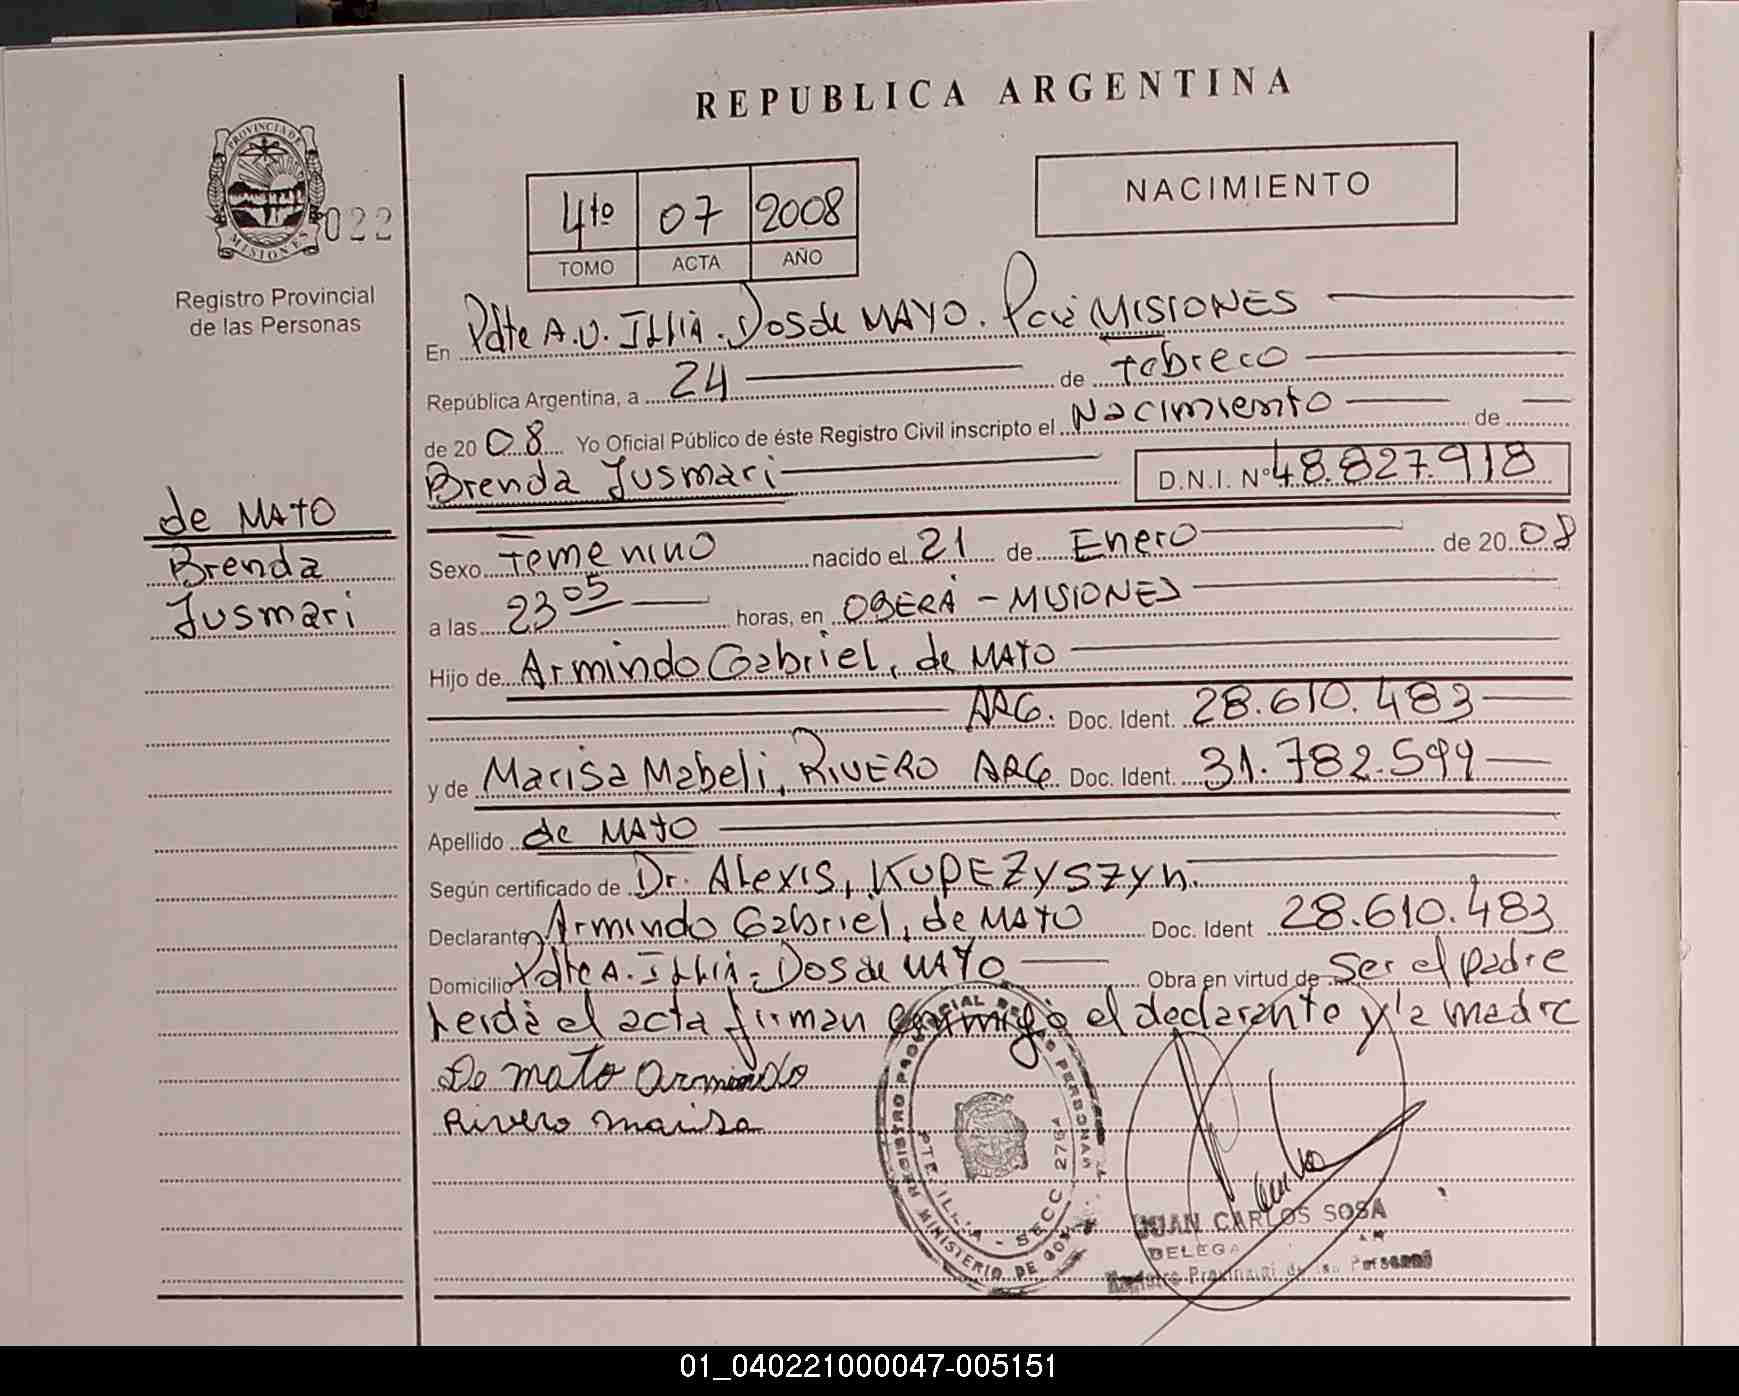 REPUBLICA ARGENTINA
PROVINCIA DE
MISIONES
022
Registro Provincial
de las Personas
4to 07 2008
TOMO ACTA AÑO
NACIMIENTO
En Pdte A.U. Illia. Dos de MAYO. Pcia MISIONES
República Argentina, a 24 de febrero
de 2008 Yo Oficial Público de éste Registro Civil inscripto el Nacimiento de
Brenda Jusmari D.N.I. Nº 48.827.918
de MATO
Brenda
Jusmari
Sexo Femenino nacido el 21 de Enero de 2008
a las 23 05 horas, en OBERÁ - MISIONES
Hijo de Armindo Gabriel, de MATO
ARG. Doc. Ident. 28.610.483
y de Marisa Mabeli, RIVERO ARG. Doc. Ident. 31.782.599
Apellido de MATO
Según certificado de Dr. Alexis, KUPEZYSZYN.
Declarante Armindo Gabriel, de MATO Doc. Ident 28.610.483
Domicilio Pdte A. Illia - Dos de MAYO Obra en virtud de Ser el padre
Leida el acta firman conmigo el declarante y la madre
De mato Armindo
Rivero Marisa
REGISTRO PROVINCIAL DE LAS PERSONAS
PTE. ILLIA - SECC 2754
MINISTERIO DE GOB
JUAN CARLOS SOSA
DELEGA
Registro Provincial de las Personas
01_040221000047-005151